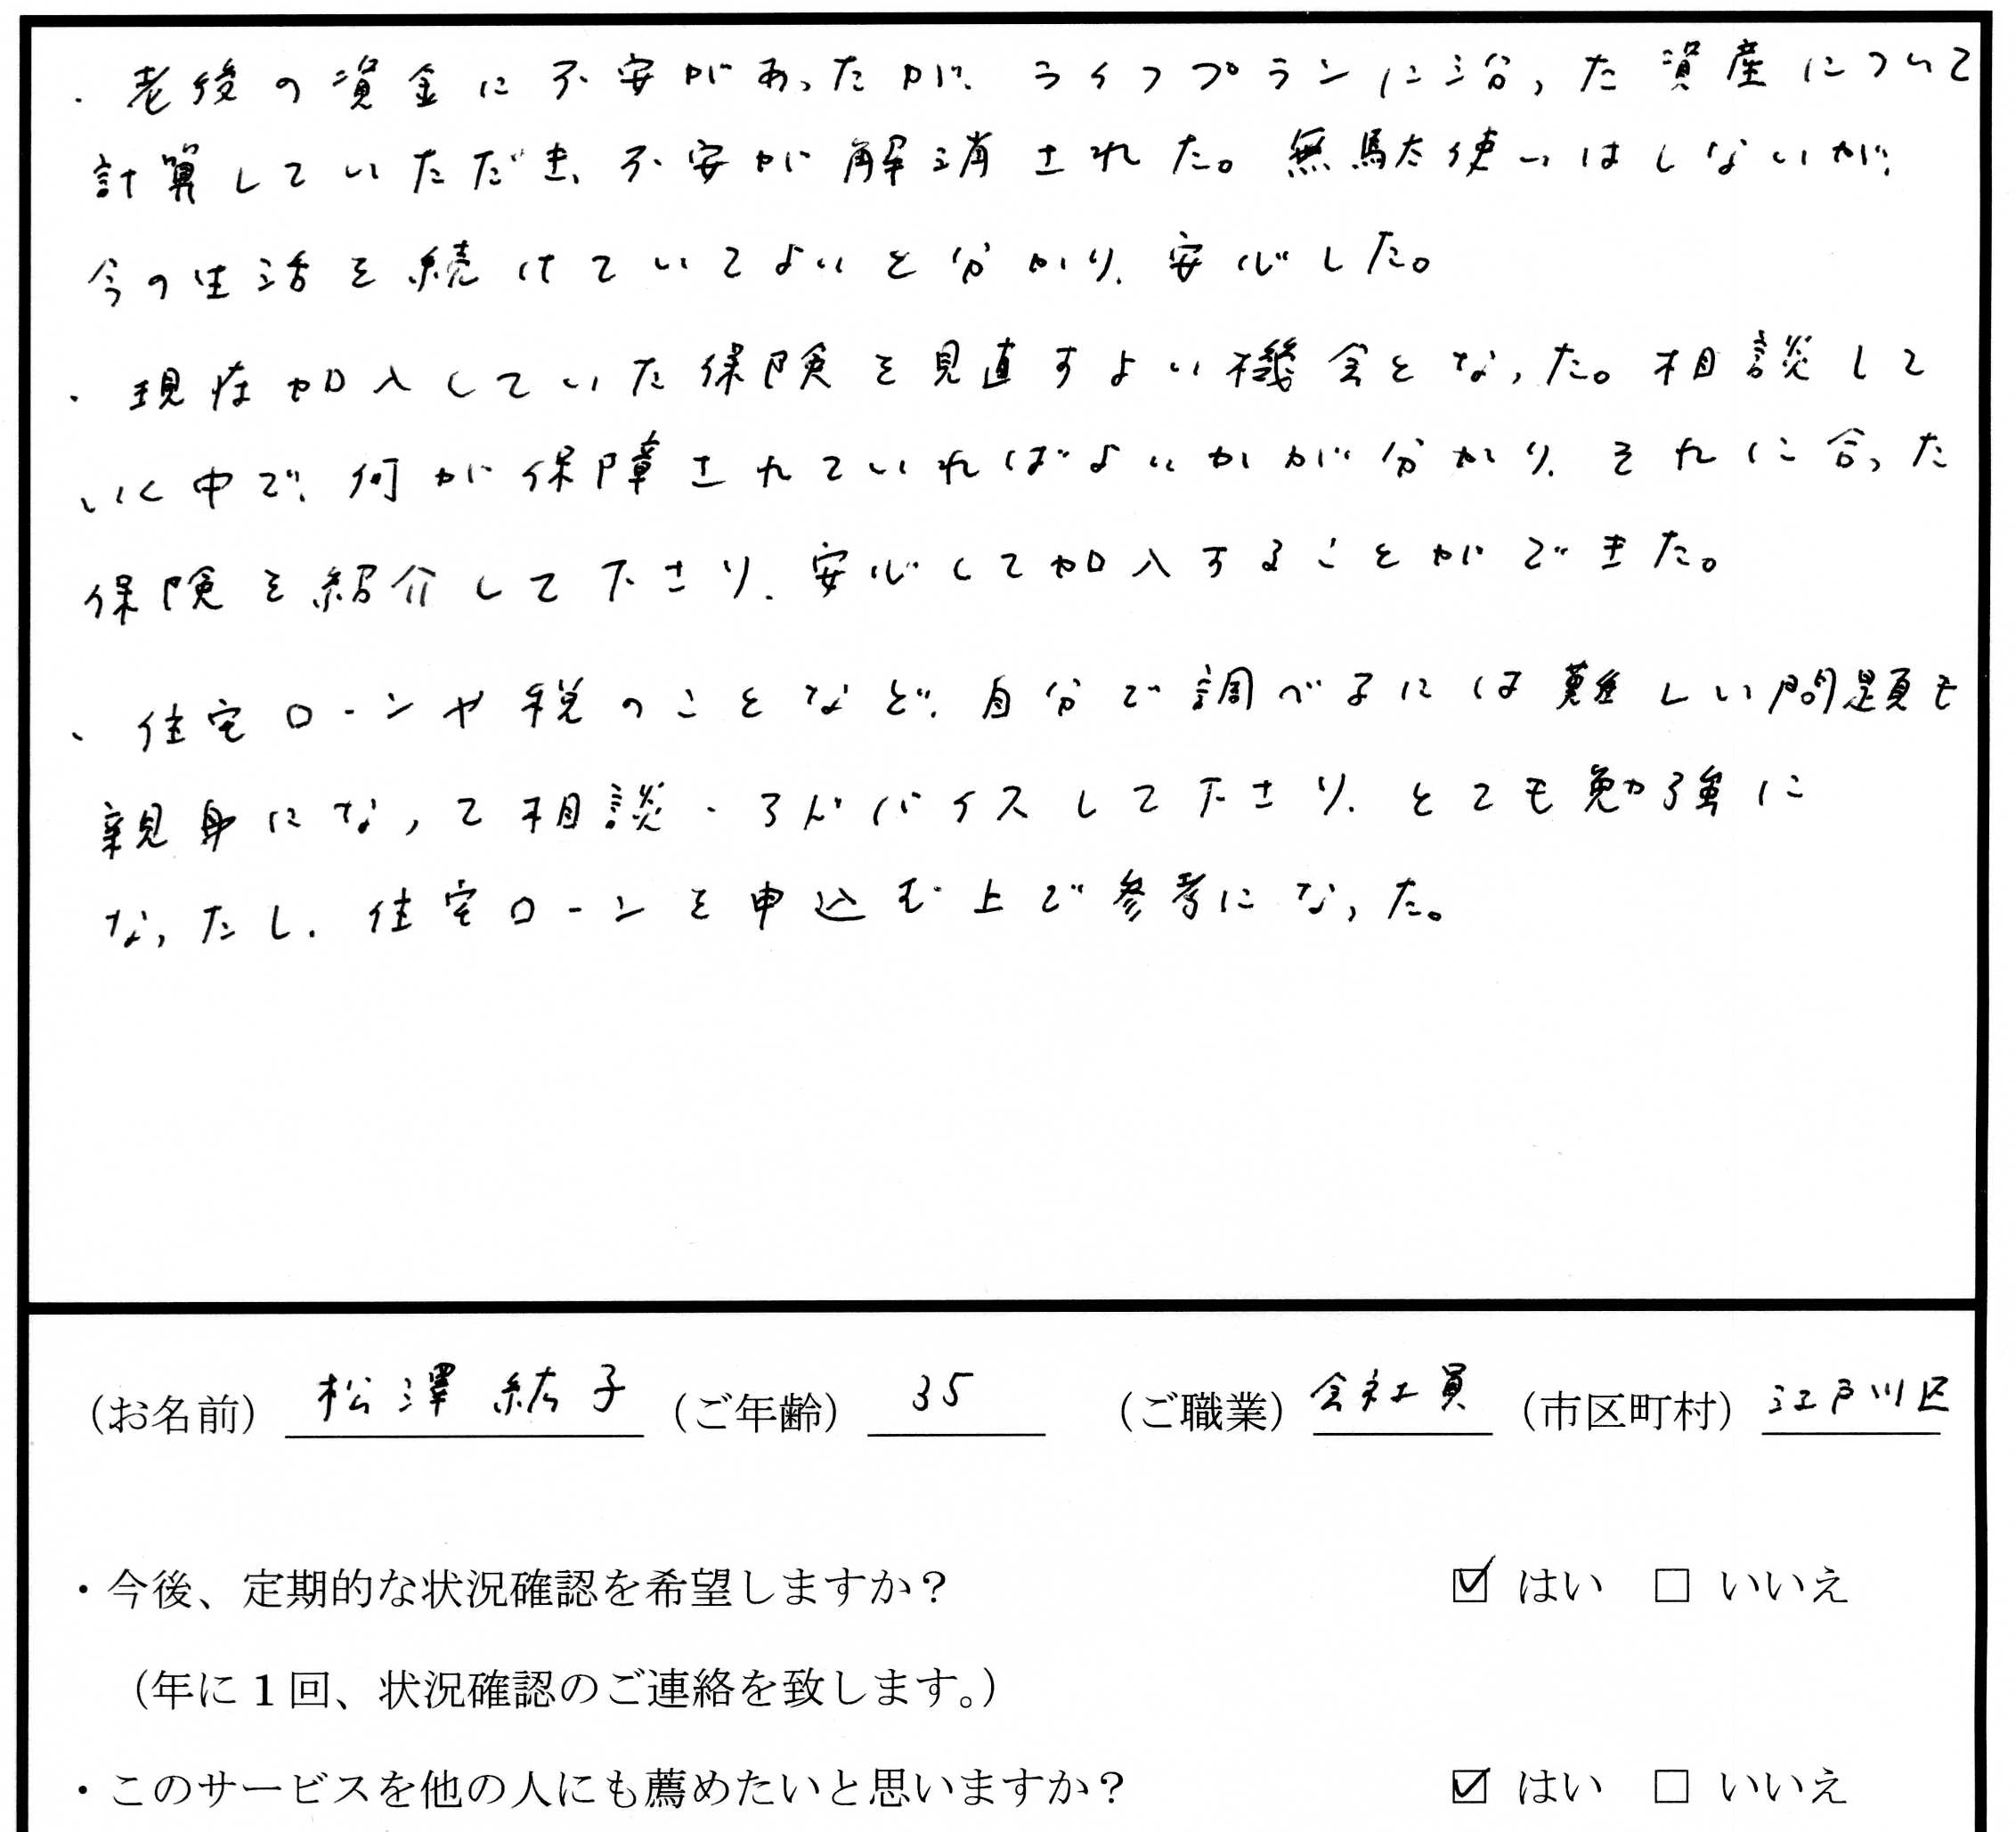 ・老後の資金に不安があったが、ライフプランに沿った資産について
計算していただき、不安が解消された。無駄使いはしないが、
今の生活を続けていてよいと分かり、安心した。
・現在加入していた保険を見直すよい機会となった。相談して
いく中で、何が保障されていればよいかが分かり、それに合った
保険を紹介して下さり、安心して加入することができた。
・住宅ローンや税のことなど、自分で調べるには難しい問題も
親身になって相談・アドバイスして下さり、とても勉強に
なったし、住宅ローンを申込む上で参考になった。
(お名前) 松澤 紘子 (ご年齢) 35 (ご職業) 会社員 (市区町村) 江戸川区
・今後、定期的な状況確認を希望しますか? ☑ はい □ いいえ
(年に1回、状況確認のご連絡を致します。)
・このサービスを他の人にも薦めたいと思いますか? ☑ はい □ いいえ